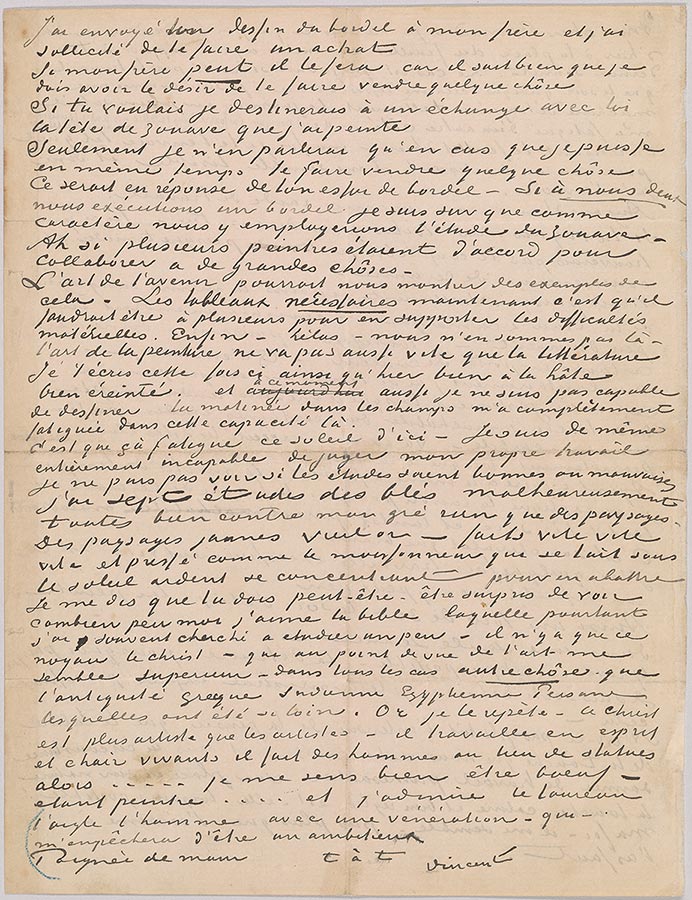 J'ai envoyé ton dessin du bordel à mon frère et j'ai
sollicité de te faire un achat
Si mon frère peut il le fera car il sait bien que je
dois avoir le désir de te faire vendre quelque chôse
Si tu voulais je destinerais à un échange avec toi
la tête de zouave que j'ai peinte
Seulement je n'en parlerai qu'en cas que je puisse
en même temps te faire vendre quelque chôse
Ce serait en réponse de ton essai de bordel – Si à nous deux
nous exécutions un bordel je suis sur que comme
caractère nous y employerions l'étude du zouave –
Ah si plusieurs peintres étaient d'accord pour
collaborer a de grandes chôses –
L'art de l'avenir pourrait nous montrer des exemples de
cela – Les tableaux nécessaires maintenant c'est qu'il
faudrait être à plusieurs pour en supporter les difficultés
matérielles. Enfin – hélas – nous n'en sommes pas là –
l'art de la peinture ne va pas aussi vite que la littérature
Je t'écris cette fois ci ainsi qu'hier bien à la hâte
bien éreinté. et aujourd'hui à ce moment aussi je ne suis pas capable
de dessiner la matinée dans les champs m'a complètement
fatiguée dans cette capacité là.
C'est que ça fatigue ce soleil d'ici – Je suis de même
entièrement incapable de juger mon propre travail
je ne puis pas voir si les études soient bonnes ou mauvaises
j'ai sept études des blés malheureusement
toutes bien contre mon gré rien que des paysages –
Des paysages jaunes vieil or – faits vite vite
vite et pressé comme le moissonneur que se tait sous
le soleil ardent se concentrant pour en abattre
Je me dis que tu dois peut-être être surpris de voir
combien peu moi j'aime la bible laquelle pourtant
j'ai souvent cherché a etudier un peu – il n'y a que ce
noyau le christ – que au point de vue de l'art me
semble superieur – dans tous les cas autre chôse que
l'antiquité grecque indienne Egyptienne Persane
lesquelles ont été si loin. Or je le répète – ce christ
est plus artiste que les artistes – il travaille en esprit
et chair vivants il fait des hommes au lieu de statues
alors ..... je me sens bien être boeuf –
etant peintre .... et j'admire le taureau
l'aigle l'homme avec une vénération – qui –
m'empêchera d'être un ambitieux
Poignée de main t à t Vincent